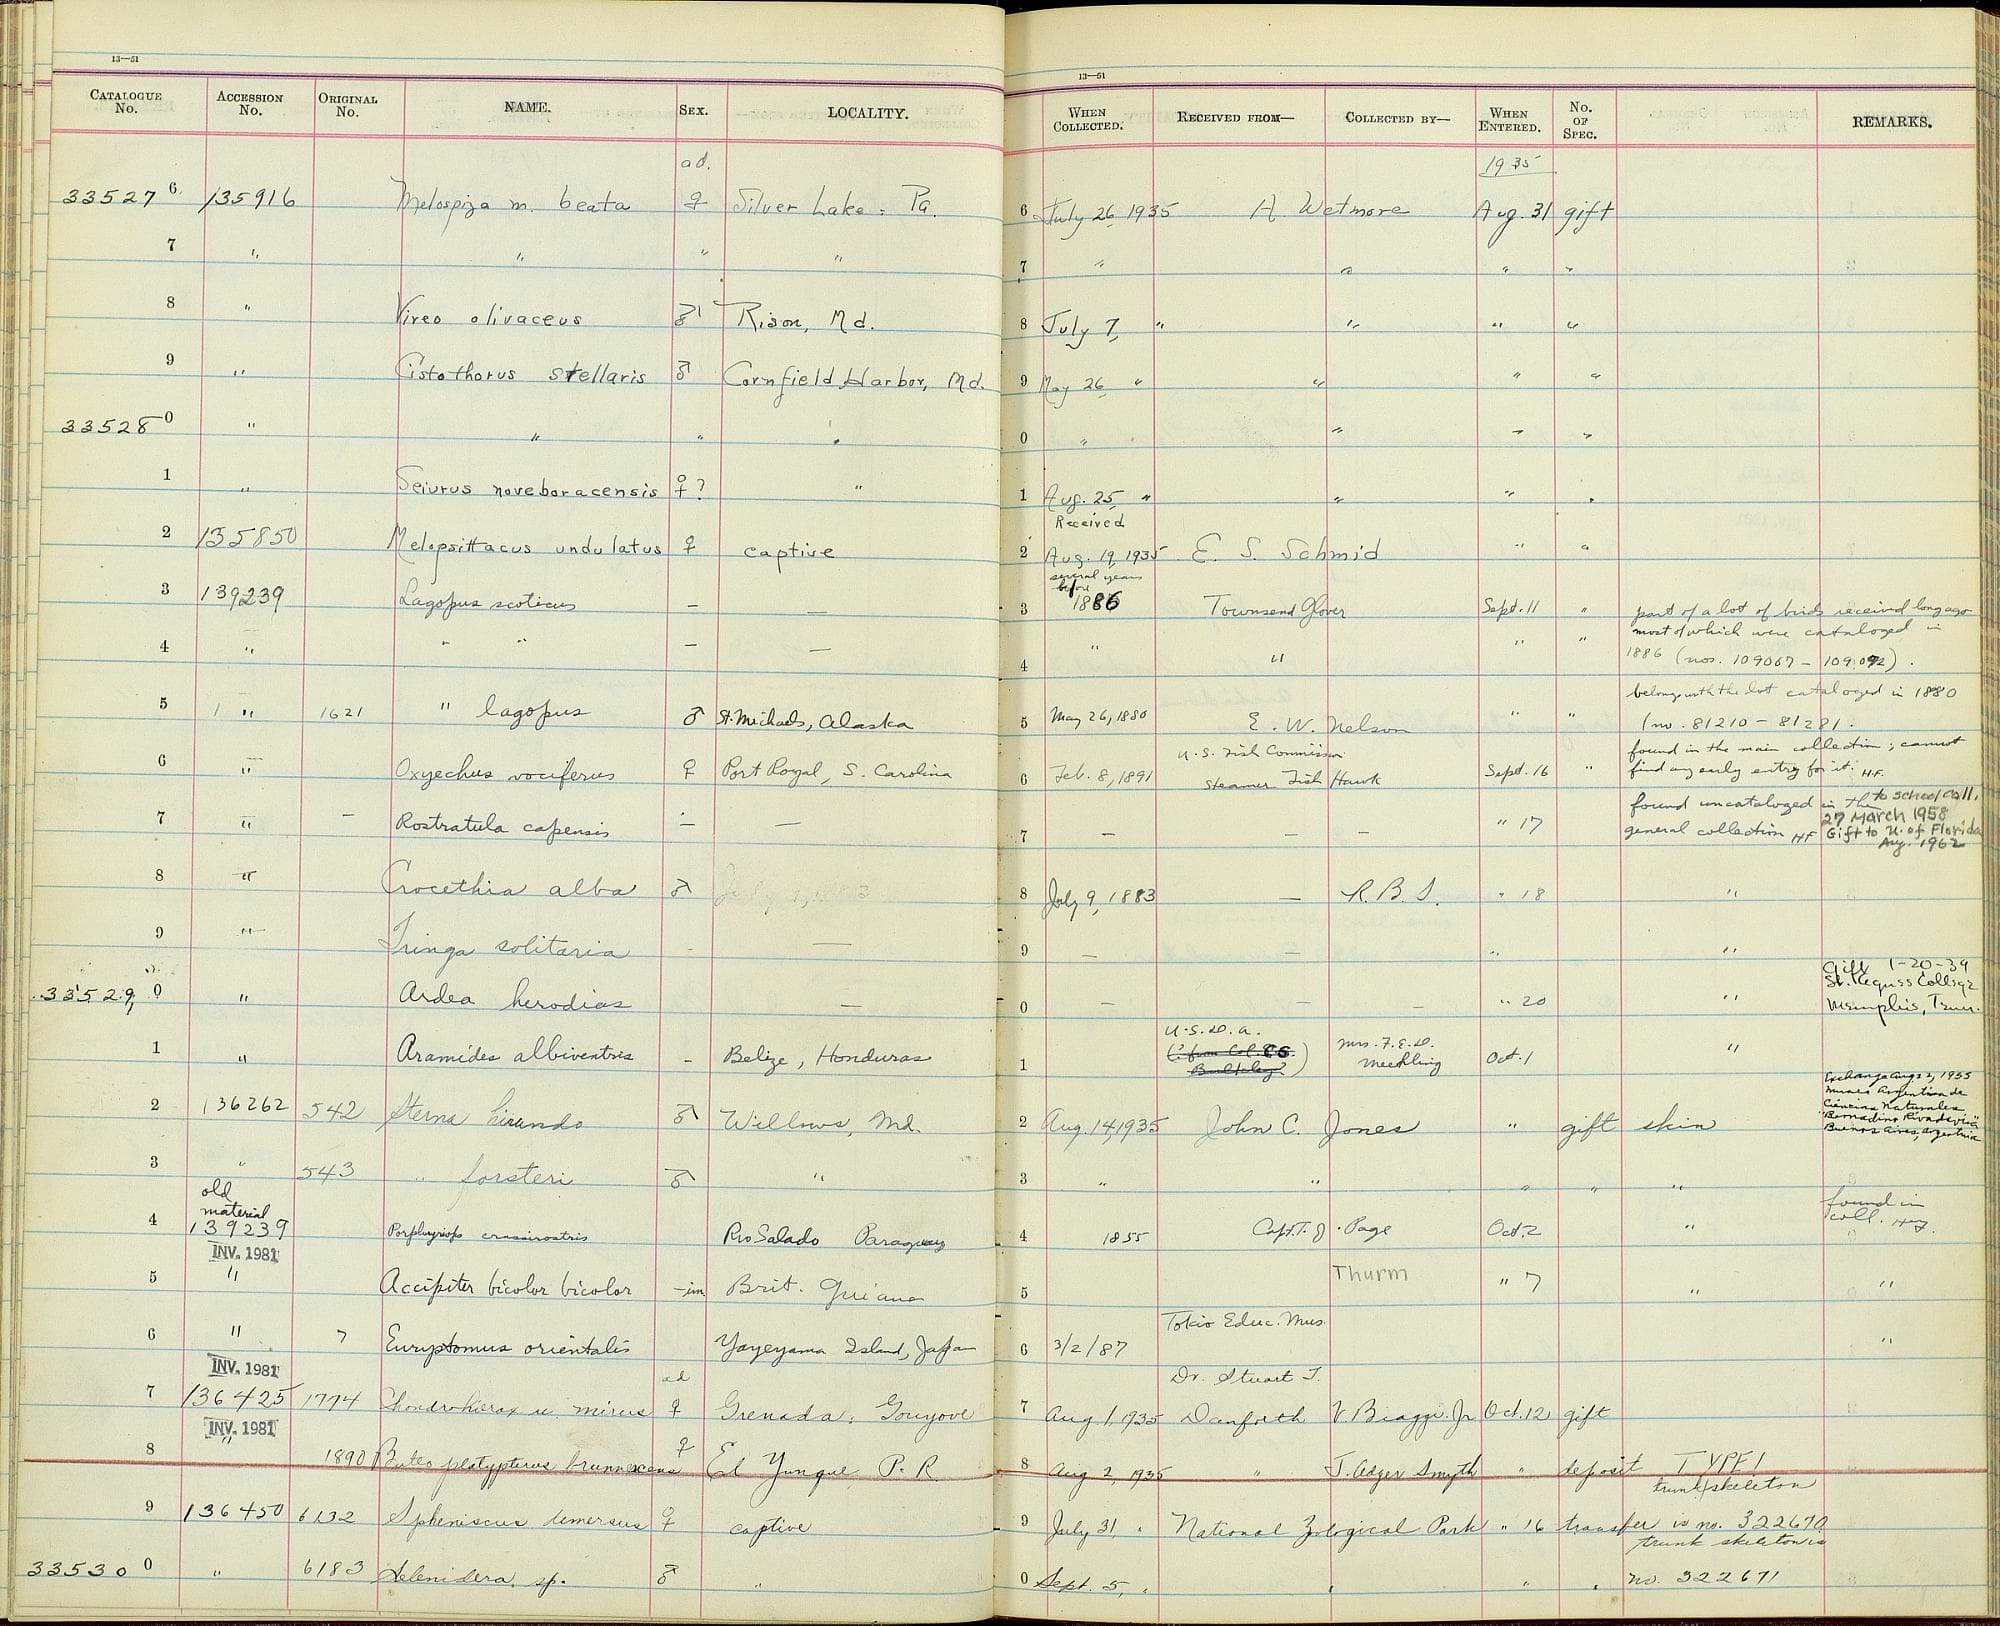 13—51
CATALOGUE No. ACCESSION No. ORIGINAL No. NAME. SEX. LOCALITY.
ad.
33527 6 135916 Melospiza m. beata ♀ Silver Lake, Pa.
7 " " " "
8 " Vireo olivaceus ♂ Rison, Md.
9 " Cistothorus stellaris ♂ Cornfield Harbor, Md.
33528 0 " " " "
1 " Seiurus noveboracensis ♀? "
2 135850 Melopsittacus undulatus ♀ captive
3 139239 Lagopus scoticus — —
4 " " " — —
5 " 1621 " lagopus ♂ St. Michaels, Alaska
6 " Oxyechus vociferus ♀ Port Royal, S. Carolina
7 " — Rostratula capensis — —
8 " Crocethia alba ♂ July 9, 1883
9 " Tringa solitaria - —
33529 0 " Ardea herodias —
1 " Aramides albiventris - Belize, Honduras
2 136262 542 Sterna hirundo ♂ Willows, Md.
3 " 543 " forsteri ♂ "
old
material
4 139239 Porphyriops crassirostris Rio Salado Paraguay
INV. 1981
5 " Accipiter bicolor bicolor - im. Brit. Guiana
6 " 7 Eurystomus orientalis Yayeyama Island, Japan
INV. 1981
ad
7 136425 1774 Chondrohierax u. mirus ♀ Grenada, Gouyave
INV. 1981
8 " 1890 Buteo platypterus brunnescens ♀ El Yunque, P. R.
9 136450 6132 Spheniscus demersus ♀ captive
33530 0 " 6183 Selenidera, sp. ♂ "
13—51
WHEN COLLECTED. RECEIVED FROM— COLLECTED BY— WHEN ENTERED. No. OF SPEC. REMARKS.
1935
6 July 26, 1935 A Wetmore Aug. 31 gift
7 " " " "
8 July 7, " " " "
9 May 26, " " " "
0 " " " "
1 Aug. 25, " " " "
Received
2 Aug. 19, 1935 E. S. Schmid " "
several years
before
3 1886 Townsend Glover Sept. 11 " part of a lot of birds received long ago
most of which were cataloged in
4 " " " " 1886 (nos. 109067 – 109092).
belongs with the lot cataloged in 1880
5 May 26, 1880 E. W. Nelson " " (no. 81210 – 81281.
U. S. Fish Commission found in the main collection; cannot
6 Feb. 8, 1891 Steamer Fish Hawk Sept. 16 " find any early entry for it. H.F.
found uncataloged in the to school coll.
27 March 1958
7 — — — " 17 general collection HF Gift to U. of Florida
Aug. 1962
8 July 9, 1883 — R. B. S. " 18 "
9 — " "
Gift 1-20-39
St. College
0 — — — " 20 " Memphis, Tenn.
U. S. D. A.
1 (? from Col. Bulkley) Mrs. F. E. D. Mechling Oct. 1 "
Exchange Aug 2, 1955
Museo Argentina de
Ciencias Naturales
"Bernadino Rivadavia"
Buenos Aires, Argentina
2 Aug. 14, 1935 John C. Jones " gift skin
3 " " " " "
found in
coll.
4 1855 Capt. T. J. Page Oct. 2 "
5 Thurm " 7 " "
Tokio Educ. Mus.
6 3/2/87 "
Dr. Stuart T.
7 Aug 1, 1935 Danforth V. Biaggi Jr Oct. 12 gift
8 Aug 2, 1935 " J. Adger Smyth " deposit TYPE!
trunk skeleton
9 July 31, " National Zoological Park " 16 transfer is no. 322670
trunk skeleton is
0 Sept. 5, " " " " no. 322671